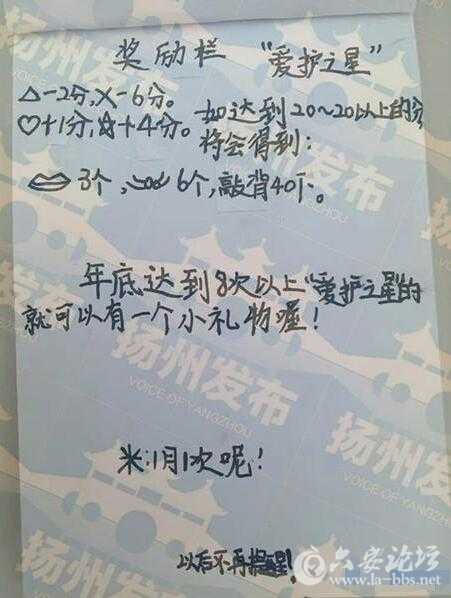 奖励栏 “爱护之星”
△-2分,×-6分。
♡+1分,☆+4分。如达到20~20以上的分
将会得到:
3个, 6个,敲背40下。
年底达到8次以上“爱护之星”的
就可以有一个小礼物喔!
米:1月1次呢!
以后不再提醒!
扬州发布
VOICE OF YANGZHOU
六安论坛
www.la-bbs.net